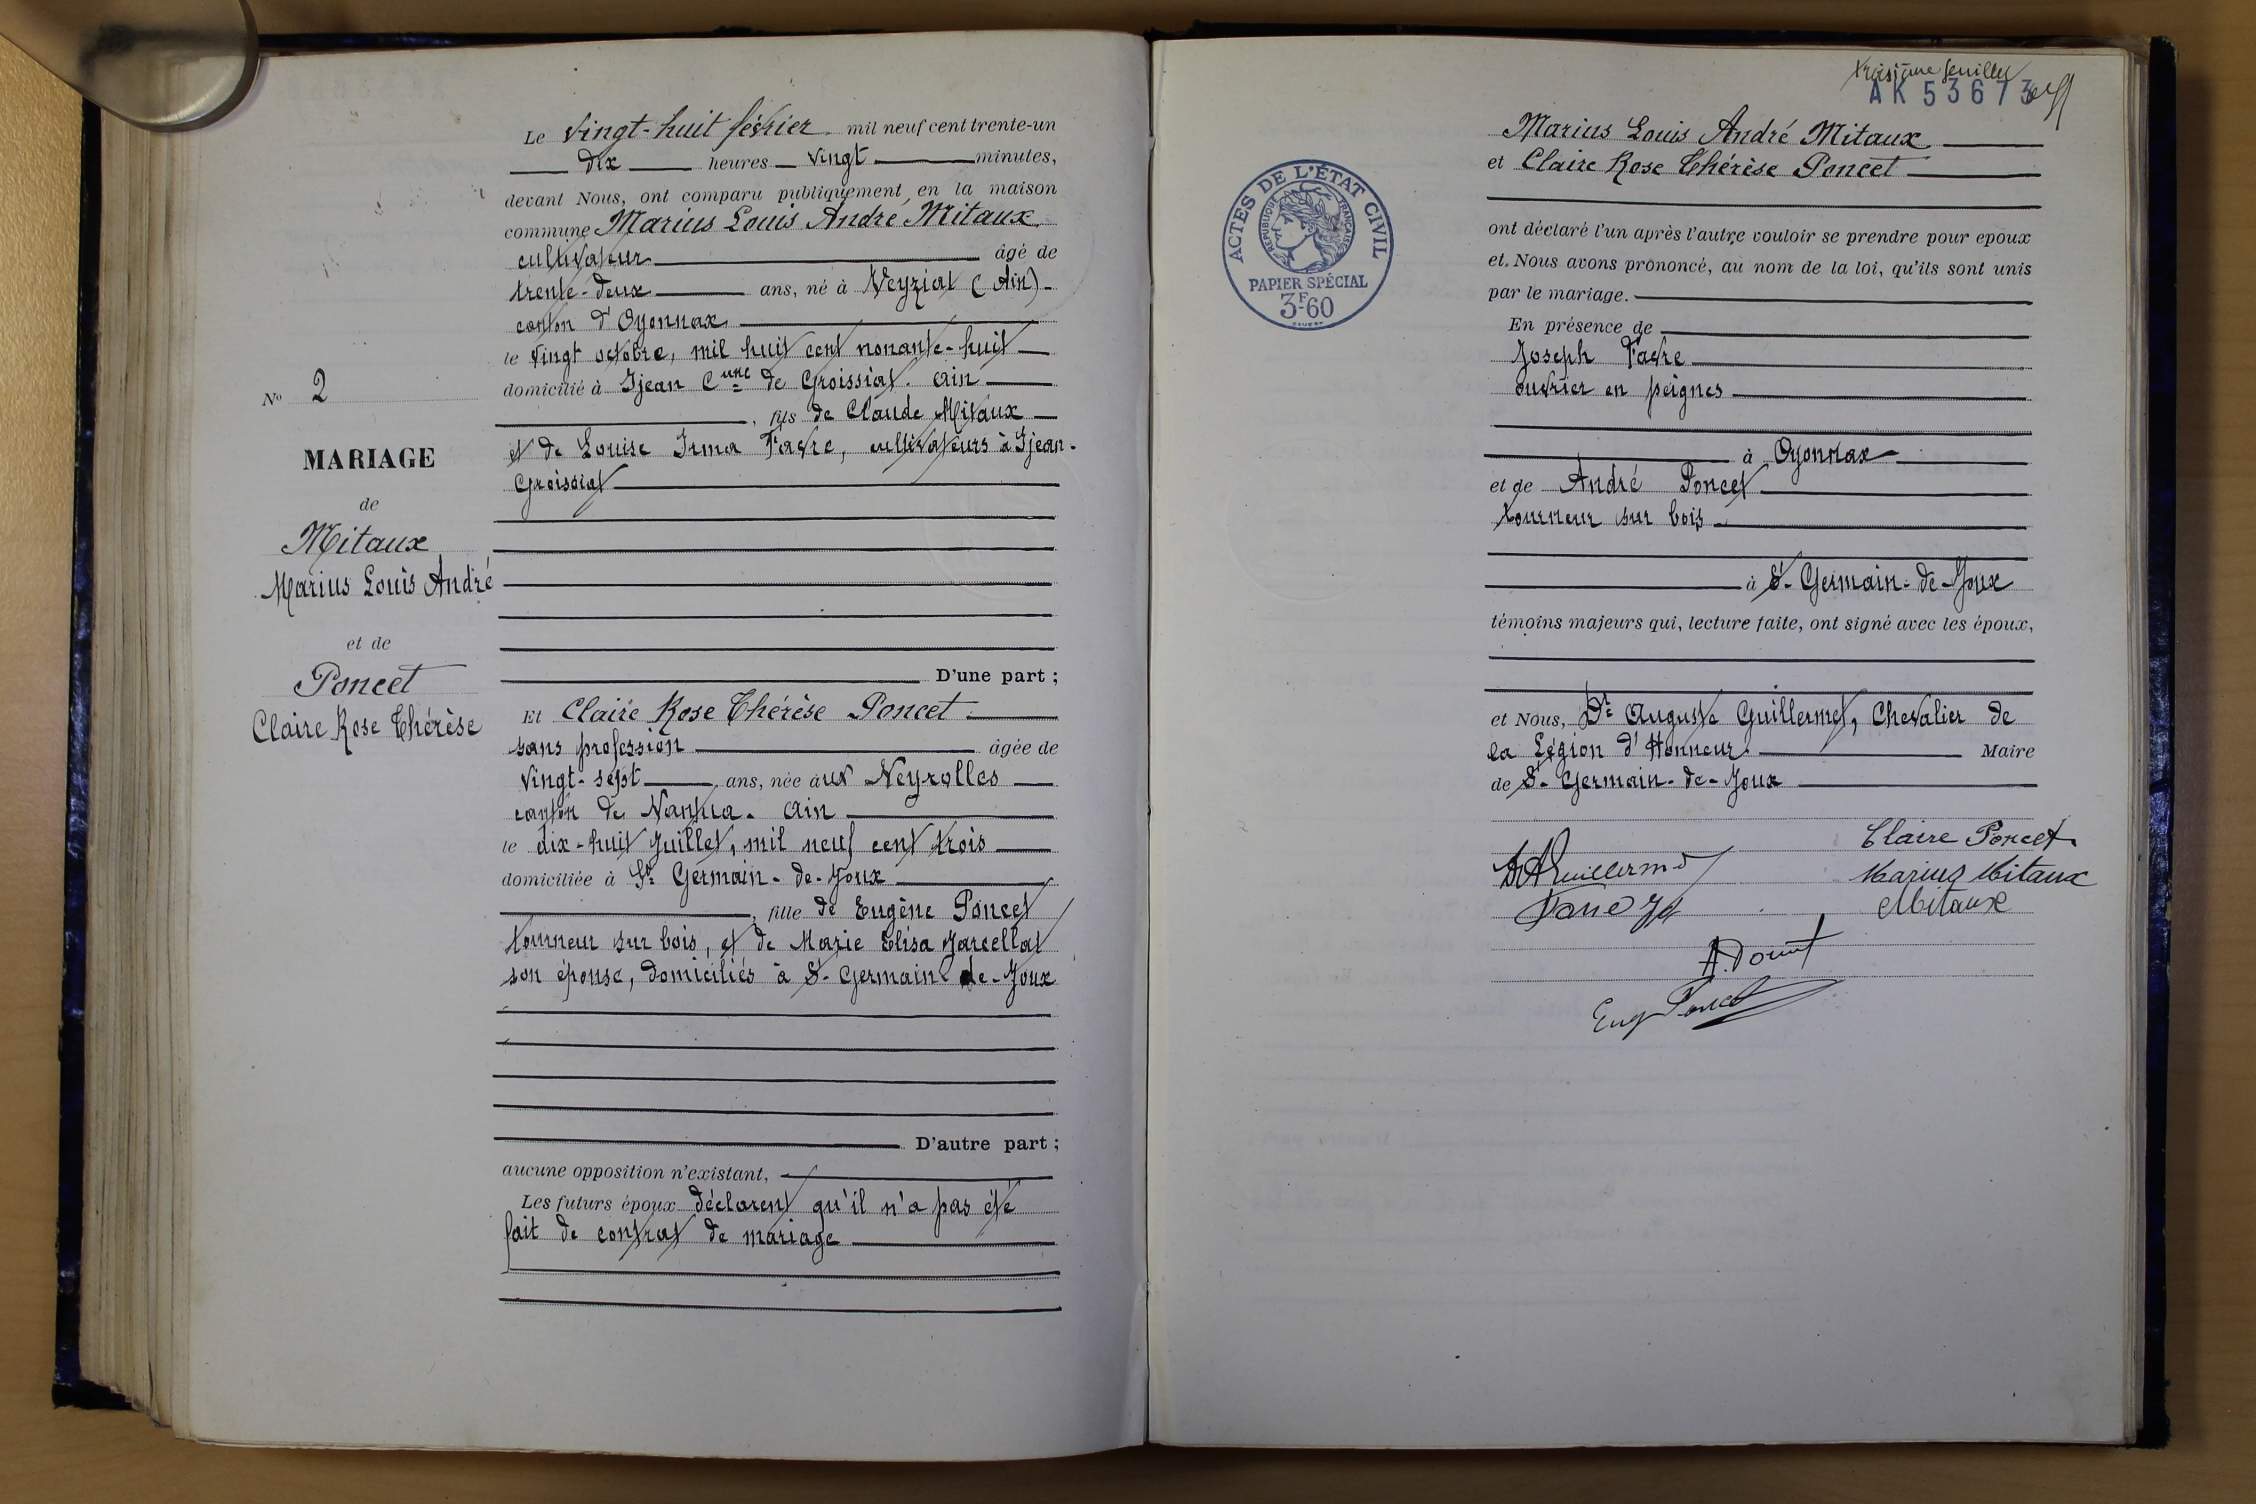 No 2
MARIAGE
de
Mitaux
Marius Louis André
et de
Poncet
Claire Rose Thérèse
Le vingt-huit février mil neuf cent trente-un
dix heures vingt minutes,
devant Nous, ont comparu publiquement en la maison
commune Marius Louis André Mitaux
cultivateur âgé de
trente-deux ans, né à Veyziat (Ain)
canton d'Oyonnax
le vingt octobre, mil huit cent nonante-huit
domicilié à Ijean Cune de Groissiat. Ain
, fils de Claude Mitaux
et de Louise Irma Favre, cultivateurs à Ijean-
Groissiat
D'une part ;
Et Claire Rose Thérèse Poncet
sans profession âgée de
vingt-sept ans, née aux Neyrolles
canton de Nantua. Ain
le dix-huit Juillet, mil neuf cent trois
domiciliée à St Germain-de-Joux
, fille de Eugène Poncet
tourneur sur bois, et de Marie Elisa Jarcellat
son épouse, domiciliés à St-Germain-de-Joux
D'autre part ;
aucune opposition n'existant,
Les futurs époux déclarent qu'il n'a pas été
fait de contrat de mariage
troisième feuillet
AK 53673
ACTES DE L'ÉTAT CIVIL
RÉPUBLIQUE FRANÇAISE
PAPIER SPÉCIAL
3F60
Marius Louis André Mitaux
et Claire Rose Thérèse Poncet
ont déclaré l'un après l'autre vouloir se prendre pour epoux
et. Nous avons prononcé, au nom de la loi, qu'ils sont unis
par le mariage.
En présence de
Joseph Favre
ouvrier en peignes
à Oyonnax
et de André Poncet
tourneur sur bois
à St-Germain-de-Joux
témoins majeurs qui, lecture faite, ont signé avec les époux,
et Nous, Dr Auguste Guillermet, Chevalier de
la Légion d'Honneur. Maire
de St-Germain-de-Joux
Claire Poncet
Marius Mitaux
Mitaux
Eug Poncet